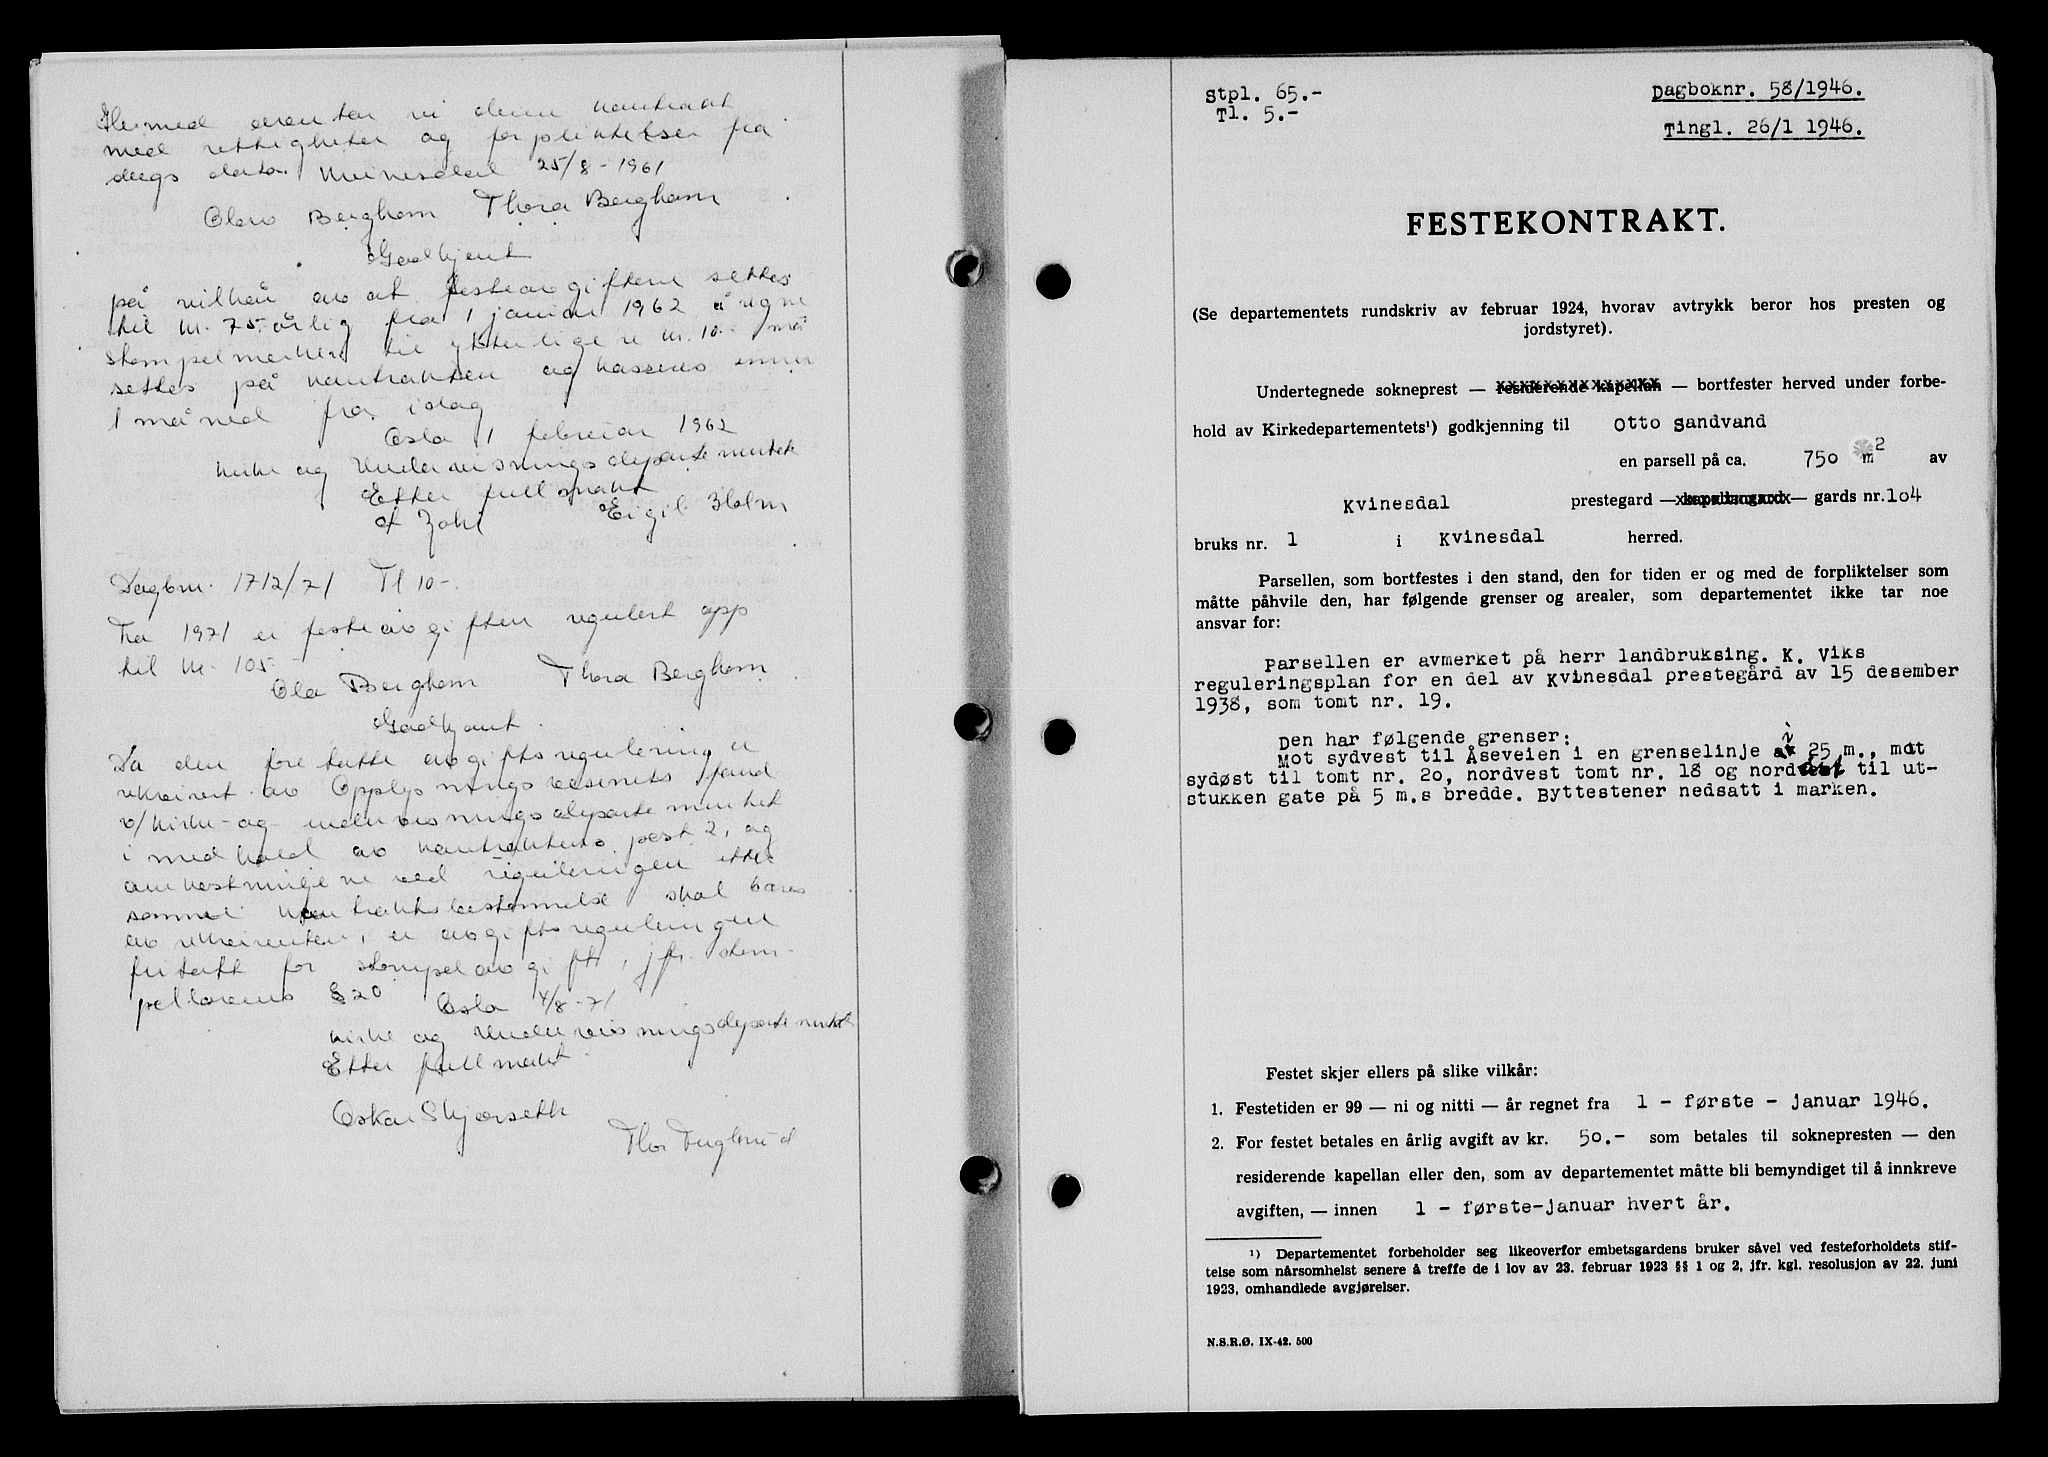 Hermed overtar vi denne kontrakt
med rettigheter og forpliktelser fra
dags dato. Kvinesdal 25/8-1961
Olav Berghom Thora Berghom
Godkjent
på vilkår av at festeavgiften settes
til kr. 75.- årlig fra 1 januar 1962 å regne
stempelmerker til ytterligere kr. 10.- må
settes på kontrakten og kasseres innen
1 måned fra idag
Oslo 1 februar 1962
Kirke og Undervisningsdepartementet
Etter fullmakt
Eigil Holm
Dagbnr. 1712/71 Tl 10.-
Fra 1971 er festeavgiften regulert opp
til kr. 105.-
Ola Berghom Thora Berghom
Godkjent.
Da den foretatte avgiftsregulering er
rekvirert av Opplysningsvesenets fond
v/Kirke- og undervisningsdepartementet
i medhold av kontraktens post 2, og
omkostningene ved reguleringen etter
samme kontraktsbestemmelse skal bæres
av rekvirenten, er avgiftsreguleringen
fritatt for stempelavgift, jfr. stem-
pellovens § 20
Oslo 4/8-71
Kirke og Undervisningsdepartementet
Etter fullmakt
Oskar Skjørseth
Thor Fuglerud
Stpl. 65.-
Tl. 5.-
Dagboknr. 58/1946.
Tingl. 26/1 1946.
FESTEKONTRAKT.
(Se departementets rundskriv av februar 1924, hvorav avtrykk beror hos presten og
jordstyret).
Undertegnede sokneprest — residerende kapellan — bortfester herved under forbe-
hold av Kirkedepartementets¹) godkjenning til Otto Sandvand
en parsell på ca. 750 m2 av
Kvinesdal prestegard — — gards nr. 104
bruks nr. 1 i Kvinesdal herred.
Parsellen, som bortfestes i den stand, den for tiden er og med de forpliktelser som
måtte påhvile den, har følgende grenser og arealer, som departementet ikke tar noe
ansvar for:
Parsellen er avmerket på herr landbruksing. K. Viks
reguleringsplan for en del av Kvinesdal prestegård av 15 desember
1938, som tomt nr. 19.
Den har følgende grenser:
Mot sydvest til Åseveien i en grenselinje i 25 m., mot
sydøst til tomt nr. 20, nordvest tomt nr. 18 og nordøst til ut-
stukken gate på 5 m.s bredde. Byttestener nedsatt i marken.
Festet skjer ellers på slike vilkår:
1. Festetiden er 99 — ni og nitti — år regnet fra 1 - første - januar 1946.
2. For festet betales en årlig avgift av kr. 50.- som betales til soknepresten — den
residerende kapellan eller den, som av departementet måtte bli bemyndiget til å innkreve
avgiften, — innen 1 - første-januar hvert år.
¹) Departementet forbeholder seg likeoverfor embetsgardens bruker såvel ved festeforholdets stif-
telse som nårsomhelst senere å treffe de i lov av 23. februar 1923 §§ 1 og 2, jfr. kgl. resolusjon av 22. juni
1923, omhandlede avgjørelser.
N.S.R.Ø. IX-42. 500